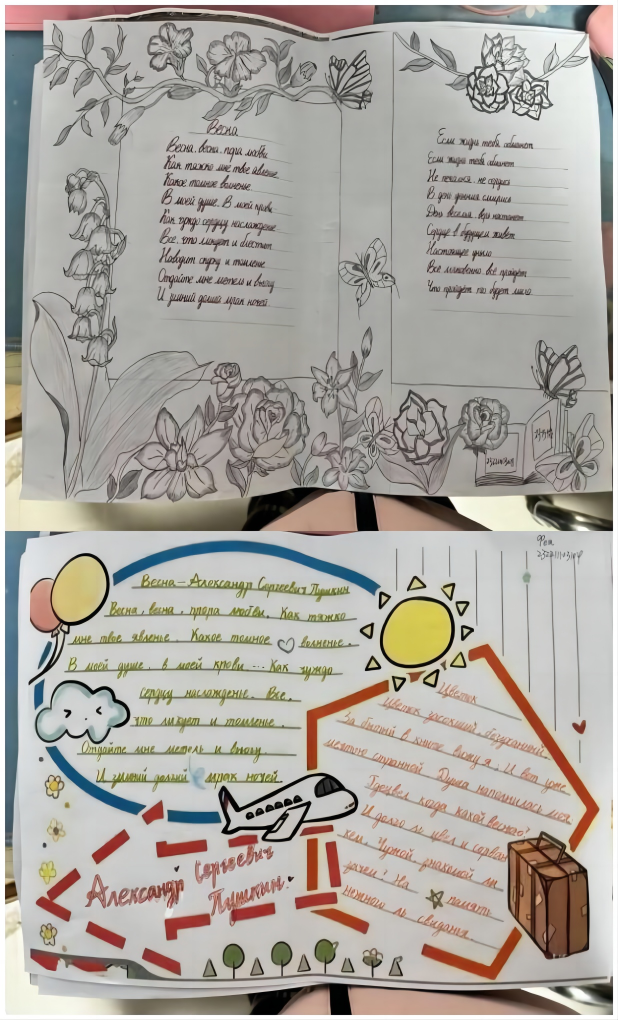 Весна
Весна, весна, пора любви
Как тяжко мне твое явленье
Какое томное волненье
В моей душе. В моей крови
Как чуждо сердцу наслажденье
Все, что ликует и блестит
Наводит скуку и томленье
Отдайте мне метель и вьюгу
И зимний долгий мрак ночей
Если жизнь тебя обманет
Если жизнь тебя обманет
Не печалься, не сердись
В день уныния смирись
День веселья, верь настанет
Сердце в будущем живет
Настоящее уныло
Все мгновенно, всё пройдет
Что пройдёт то будет мило
Весна - Александр Сергеевич Пушкин
Весна, весна, прора любви. Как тяжко
мне твое явленье. Какое томное волненье.
В моей душе, в моей крови ... Как чуждо
сердцу наслажденье. Все,
что ликует и томленье.
Отдайте мне метель и вьюгу.
И зимний долгий мрак ночей
Фен
Цветок
Цветок засохший, безуханный,
Забытый в книге вижу я; И вот уже
мечтою странной Душа наполнилась моя
Где цвел когда какой весною?
И долго ль цвел и сорван
кем. Чужой, знакомой ли
зачем? На память
нежного ль свиданья
Александр Сергеевич
Пушкин.